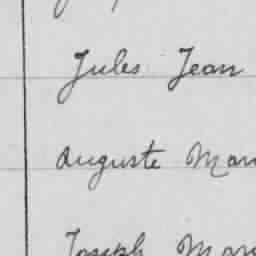 Jules Jean
Auguste Mar
Joseph Mar